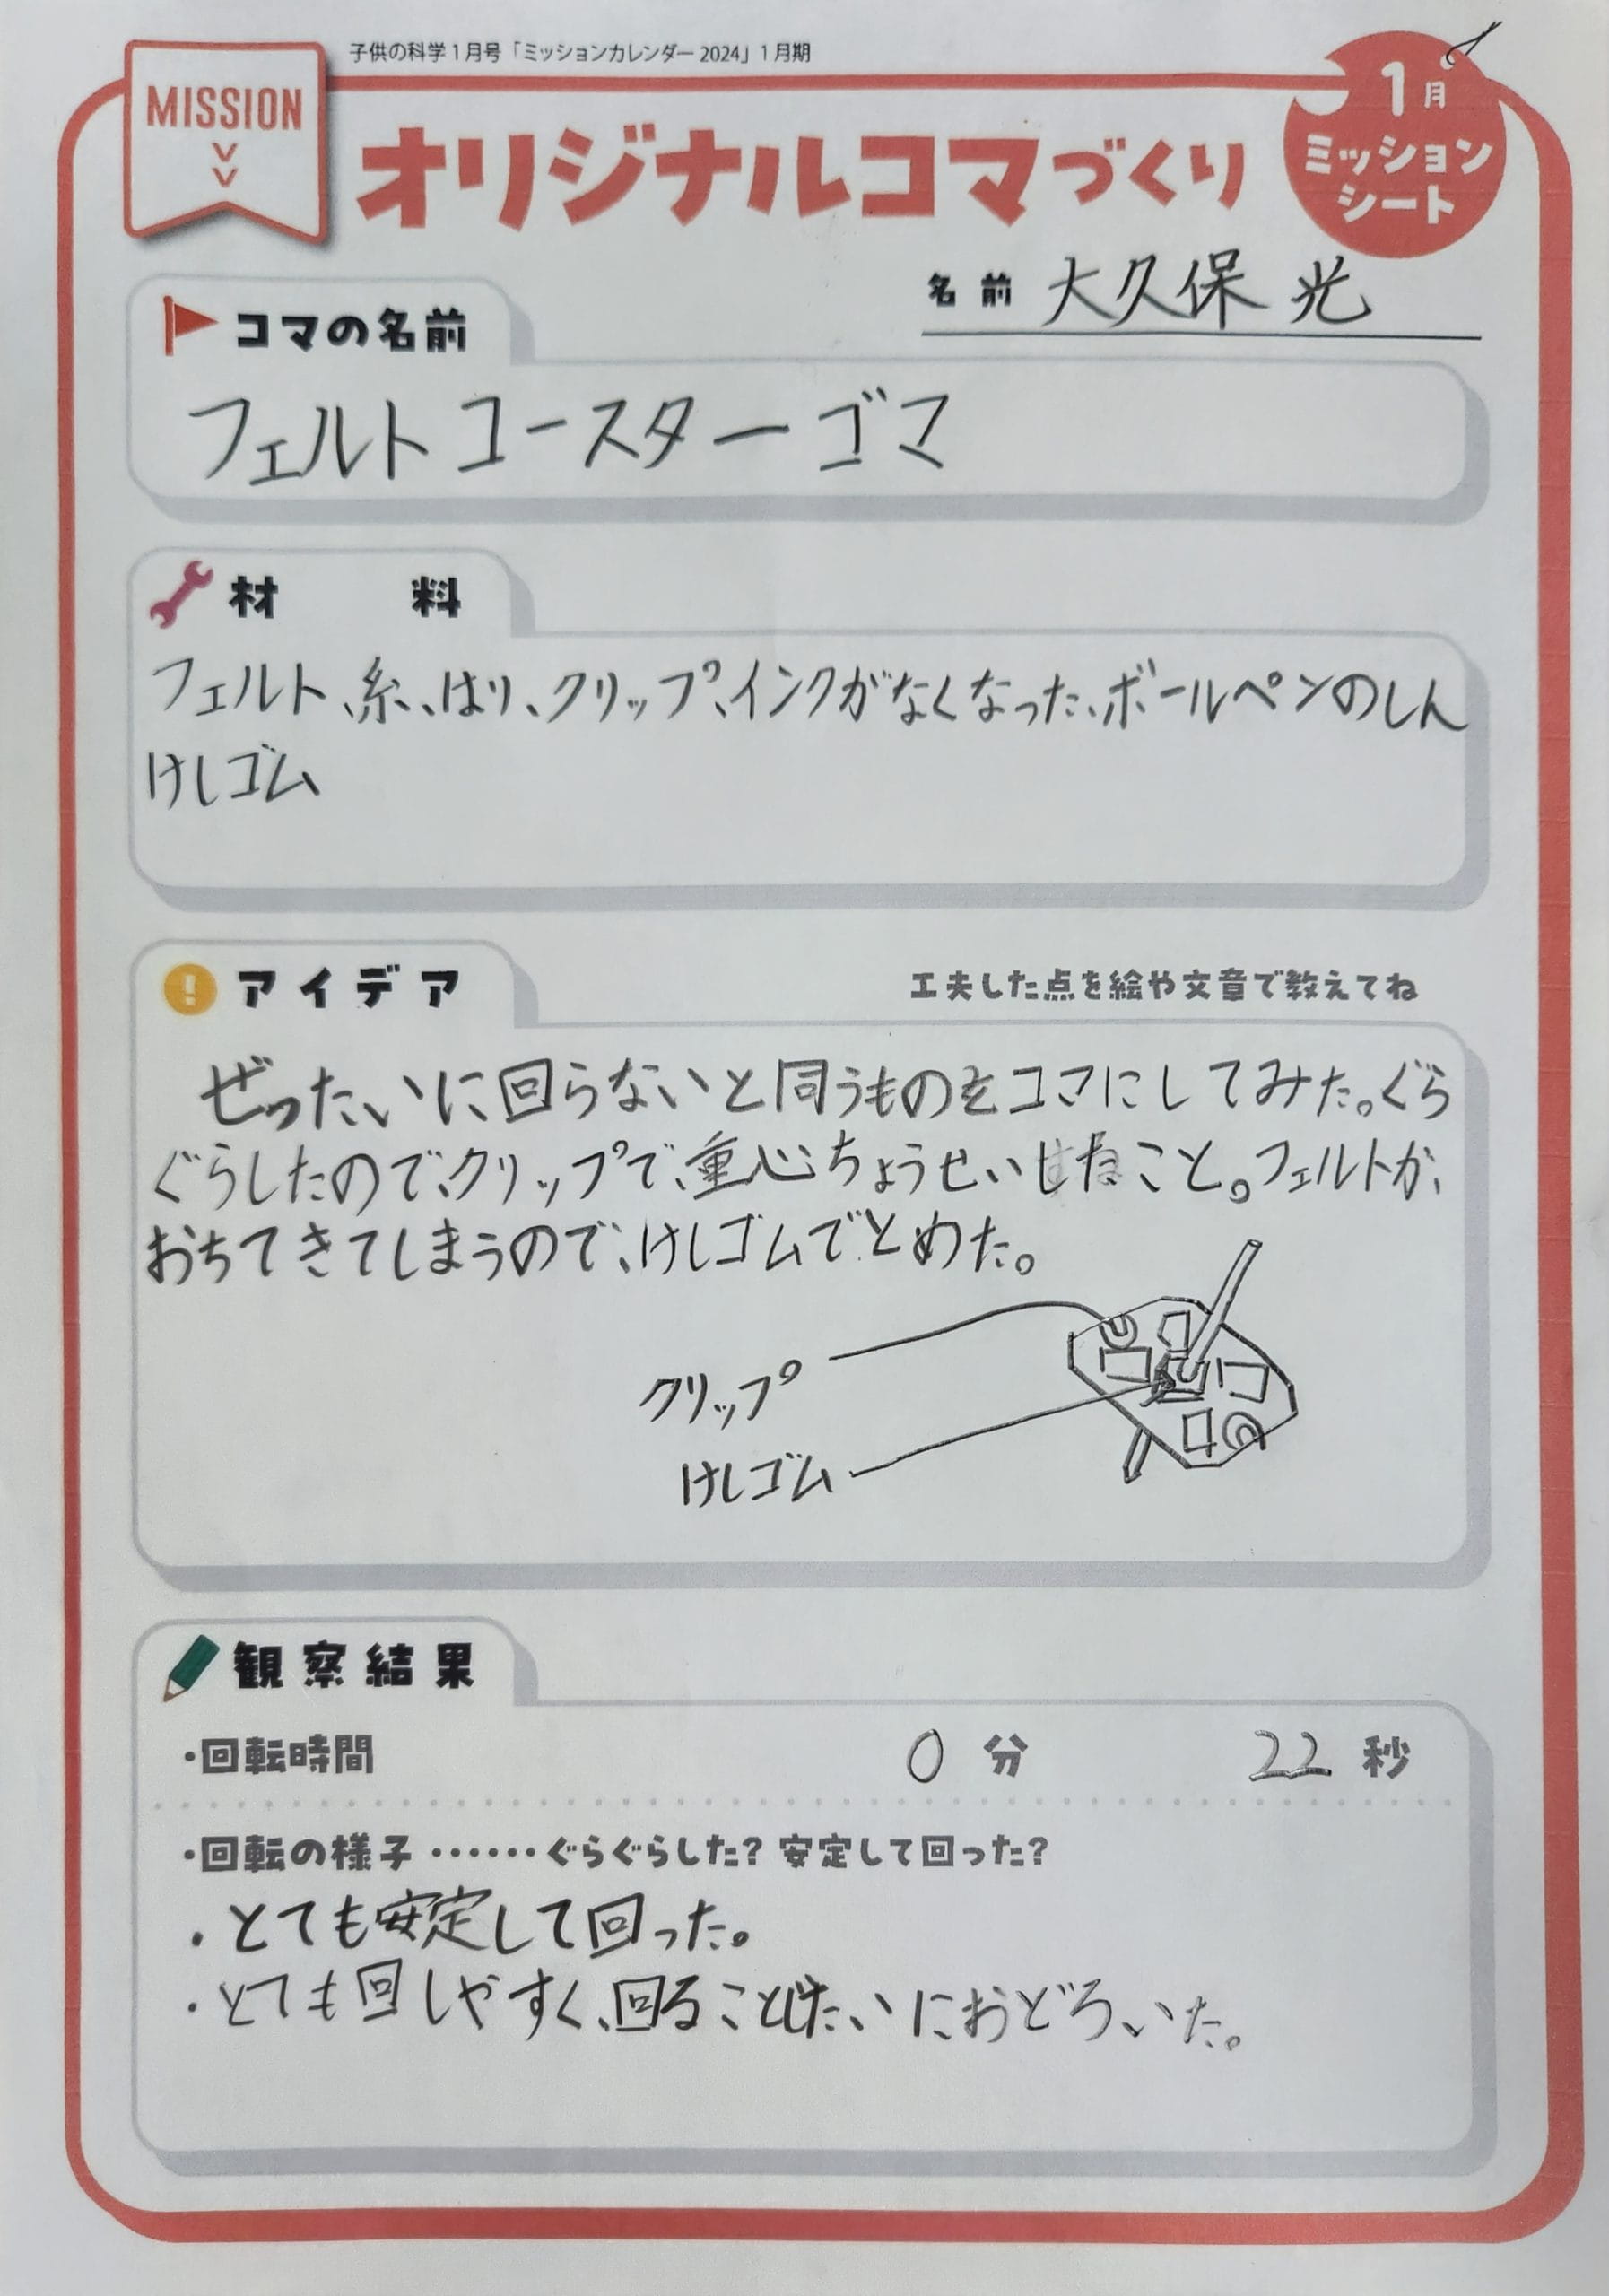 子供の科学1月号「ミッションカレンダー2024」1月期
MISSION
オリジナルコマづくり
1月
ミッション
シート
名前 大久保 光
コマの名前
フェルトコースターゴマ
材料
フェルト、糸、はり、クリップ、インクがなくなった、ボールペンのしん
けしゴム
アイデア
工夫した点を絵や文章で教えてね
ぜったいに回らないと同うものをコマにしてみた。ぐら
ぐらしたので、クリップで、重心ちょうせいしたこと。フェルトが、
おちてきてしまうので、けしゴムでとめた。
クリップ
けしゴム
観察結果
・回転時間 0分 22秒
・回転の様子……ぐらぐらした? 安定して回った?
・とても安定して回った。
・とても回しやすく、回ること じたいにおどろいた。